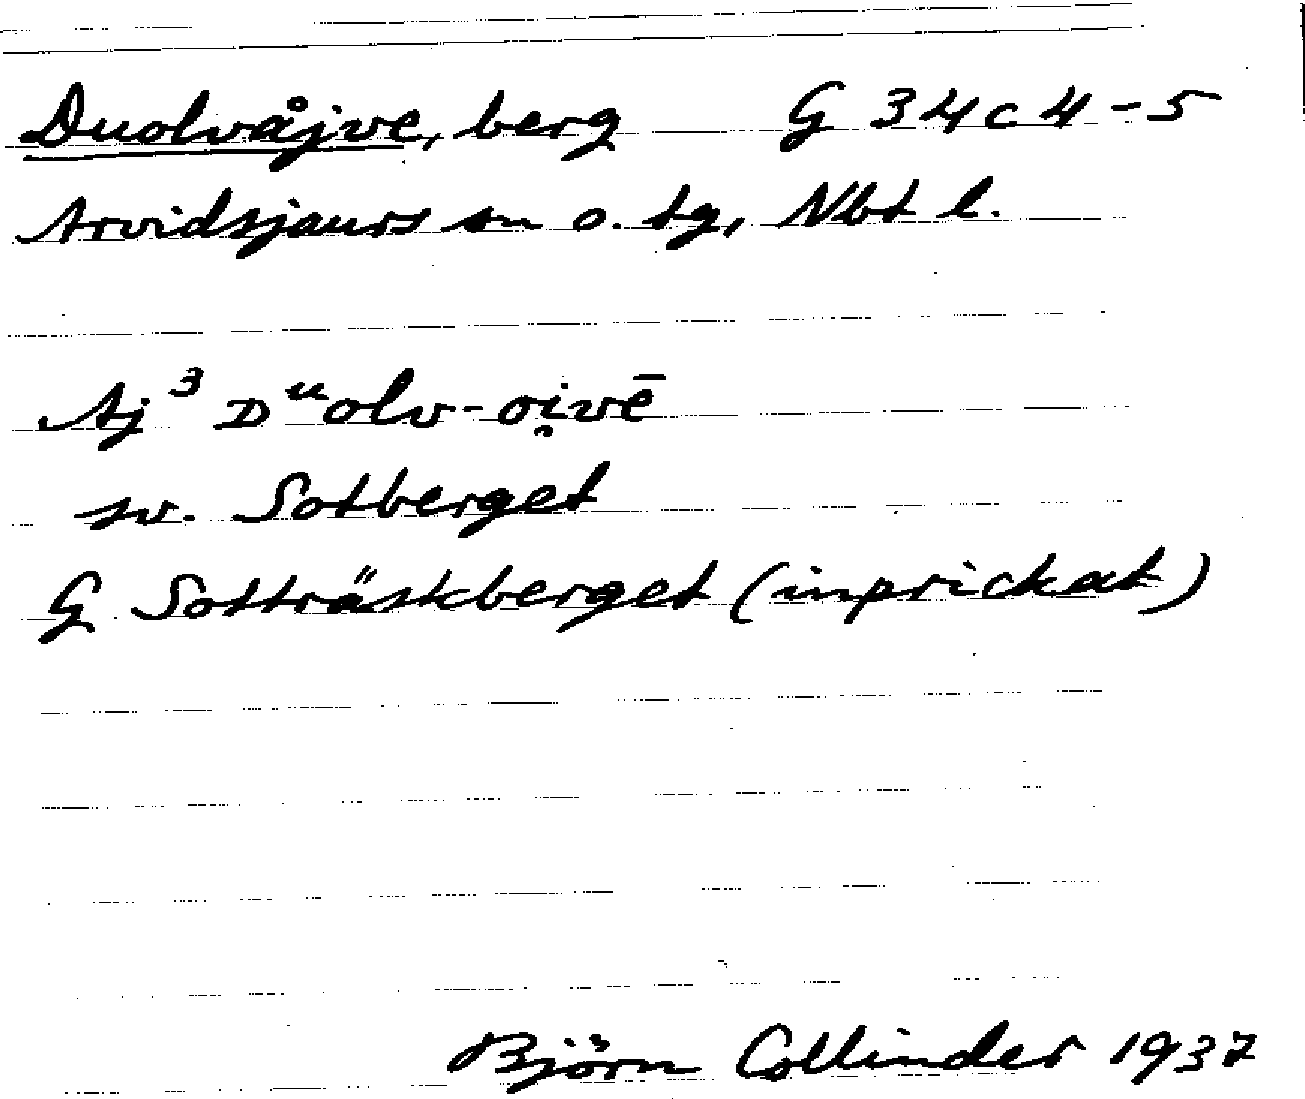 Duolvåjve, berg G 34c4-5
Arvidsjaurs sn o. tg, Nbt l.
Aj³ Dᵘolv-oi̯vē
sv. Sotberget
G Sotträskberget (inprickat)
Björn Collinder 1937